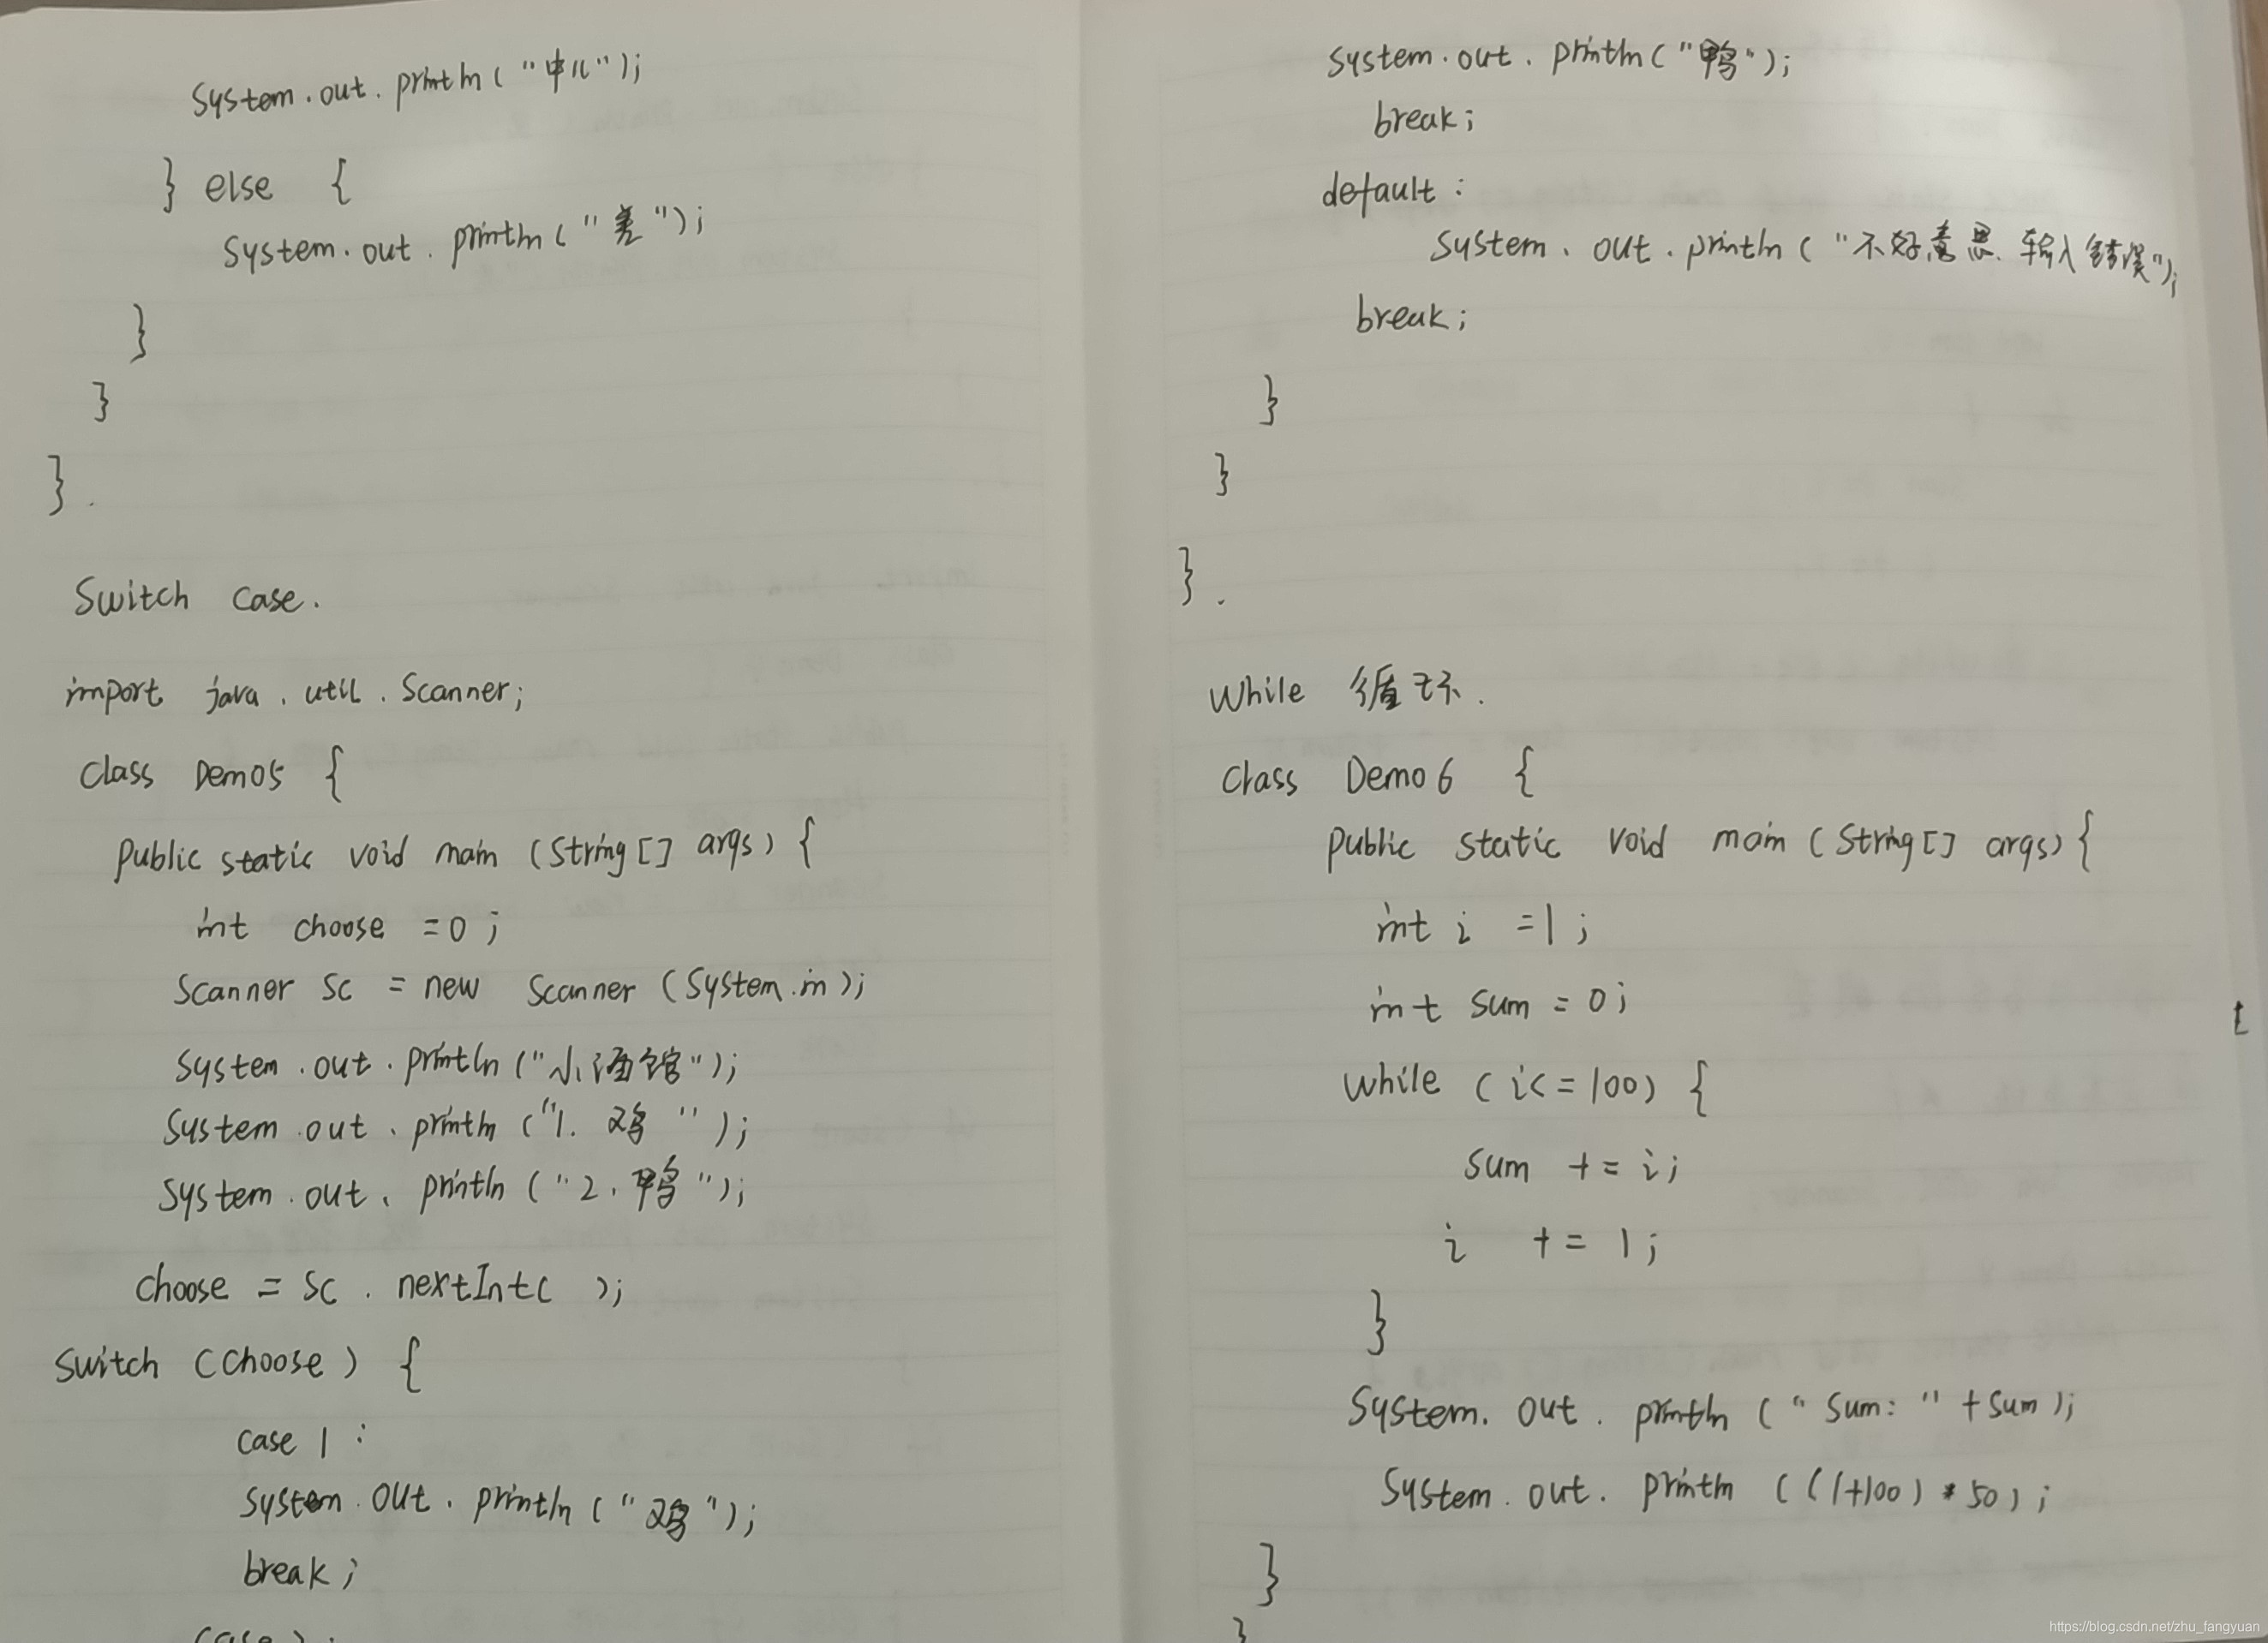 System.out.println("中儿");
} else {
System.out.println("差");
}
}
}.
Switch case.
import java.util.Scanner;
class Demo5 {
public static void main (String[] args) {
int choose =0;
Scanner sc = new Scanner (System.in);
System.out.println("小酒馆");
System.out.println ("1. 鸡");
System.out.println ("2. 鸭");
choose = sc.nextInt( );
switch (choose) {
case 1:
System.out.println ("鸡");
break;
System.out.println("鸭");
break;
default:
System.out.println ("不好意思.输入错误");
break;
}
}
}.
While 循环.
class Demo 6 {
public static void main (String[] args){
int i =1;
int sum = 0;
while (i<=100) {
sum += i;
i += 1;
}
System.out.println ("sum: " +sum);
System.out.println ((1+100) * 50);
}
}
https://blog.csdn.net/zhu_fangyuan